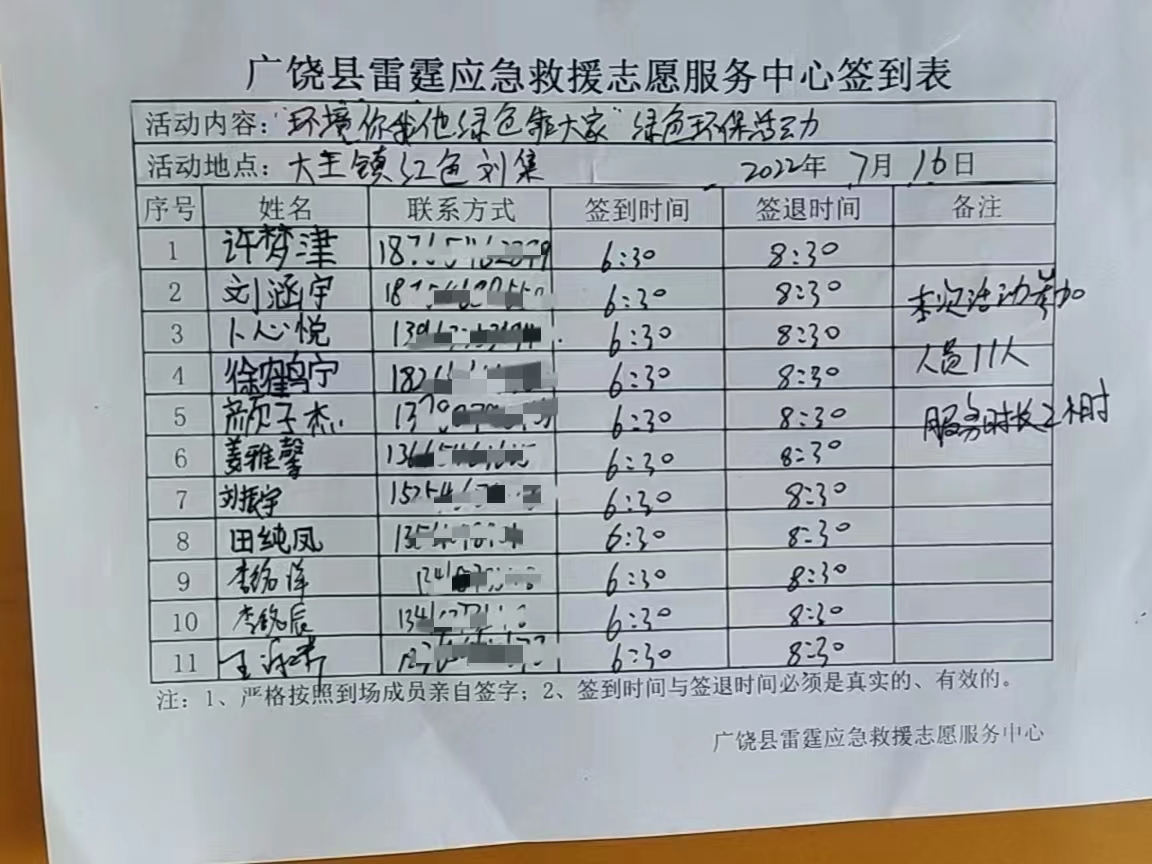 广饶县雷霆应急救援志愿服务中心签到表
活动内容："环境你我他绿色靠大家"绿色环保活动
活动地点：大王镇红色刘集 2022年 7月 16日
序号 姓名 联系方式 签到时间 签退时间 备注
1 许梦津 6:30 8:30
2 刘涵宇 6:30 8:30 本次活动参加
3 卜心悦 6:30 8:30
人员11人
4 徐鹤宁 6:30 8:30
5 颜子杰 6:30 8:30 服务时长2小时
6 姜雅馨 6:30 8:30
7 刘振宇 6:30 8:30
8 田纯凤 6:30 8:30
9 6:30 8:30
10 李铭辰 6:30 8:30
11 6:30 8:30
注：1、严格按照到场成员亲自签字；2、签到时间与签退时间必须是真实的、有效的。
广饶县雷霆应急救援志愿服务中心